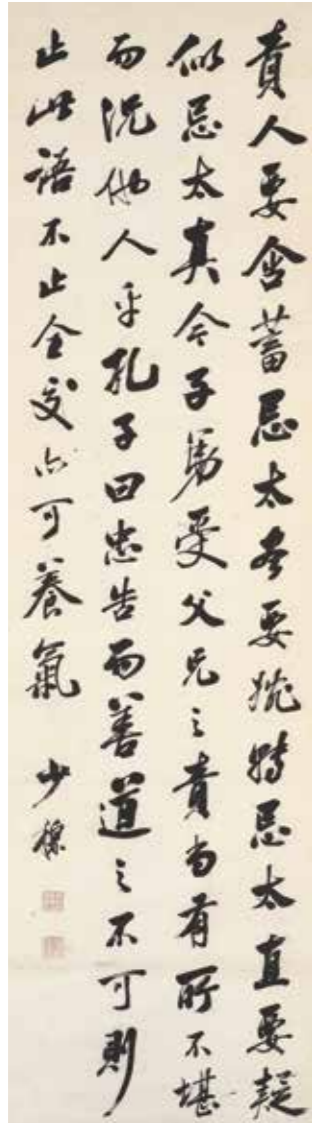 責人要含蓄忌太尽要婉轉忌太直要疑
似忌太真今子弟受父兄之責尚有所不堪
而況他人乎孔子曰忠告而善道之不可則
止此語不止全交亦可養氣 少穆